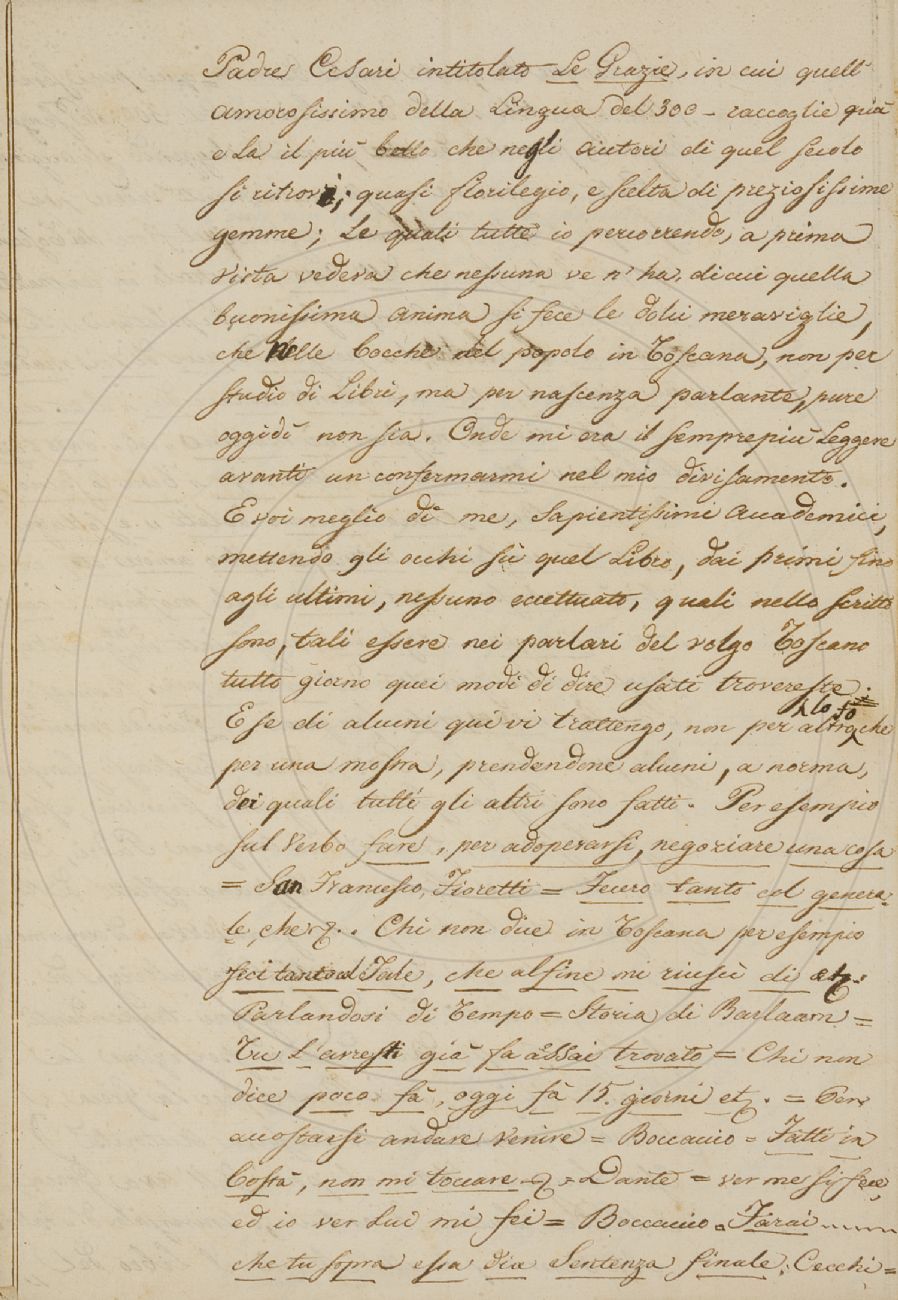 Padre Cesari intitolato Le Grazie, in cui quell'
amorosissimo della Lingua del 300 - raccoglie quà
e la il più bello che negli autori di quel secolo
si ritrovi; quasi florilegio, e scelta di preziosissime
gemme; Le quali tutte io percorrendo, a prima
vista vedeva che nessuna ve n'ha, di cui quella
buonissima anima si fece le dolci meraviglie,
che nelle bocche del popolo in Toscana, non per
studio di Libri, ma per nascenza parlante, pure
oggidì non sia. Onde mi era il semprepiù Leggere
avanti un confermarmi nel mio divisamento.
E voi meglio di me, Sapientissimi Accademici,
mettendo gli occhi sù quel Libro, dai primi fino
agli ultimi, nessuno eccettuato, quali nello scritto
sono, tali essere nei parlari del volgo Toscano
tutto giorno quei modi di dire usati trovereste.
E se di alcuni quì vi trattengo, non per altro, lo fo che
per una mostra, prendendone alcuni, a norma,
dei quali tutti gli altri sono fatti. Per esempio
sul Verbo fare, per adoperarsi, negoziare una cosa
= San Francesco, Fioretti = Fecero tanto col genera-
le, che &. Chi non dice in Toscana per esempio
feci tanto col Tale, che alfine mi riuscì di etc.
Parlandosi di Tempo = Storia di Barlaam =
Tu l'avresti già fa assai trovato = Chi non
dice poco fà, oggi fà 15. giorni etc. = Per
accostarsi andare venire = Boccaccio = Fatti in
Costà, non mi toccare - & = Dante = ver me si fece,
ed io ver Lui mi fei = Boccaccio = Farai ......
che tu sopra essa dia Sentenza finale. Cecchi =